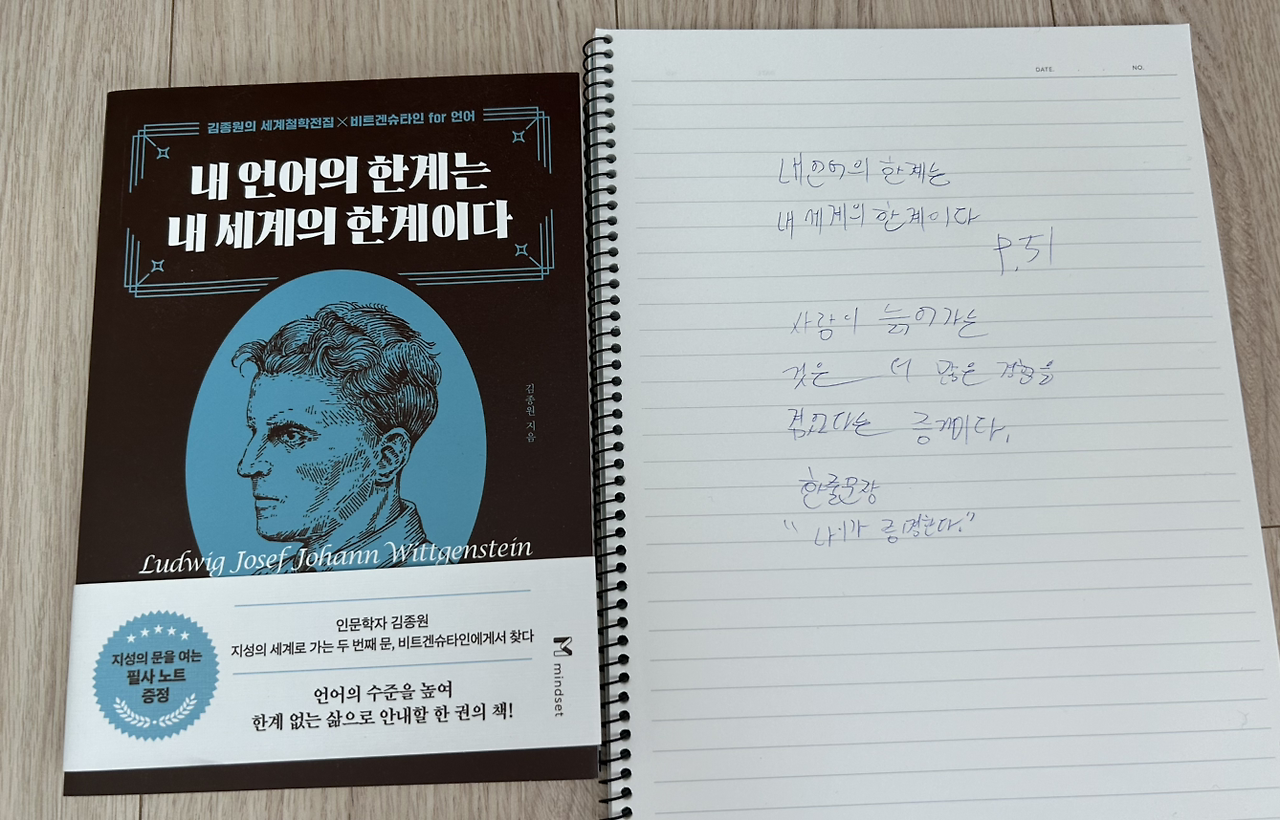 김종원의 세계철학전집×비트겐슈타인 for 언어
내 언어의 한계는
내 세계의 한계이다
김종원 지음
Ludwig Josef Johann Wittgenstein
지성의 문을 여는
필사 노트
증정
인문학자 김종원
지성의 세계로 가는 두 번째 문, 비트겐슈타인에게서 찾다
언어의 수준을 높여
한계 없는 삶으로 안내할 한 권의 책!
mindset
DATE. NO.
내 언어의 한계는
내 세계의 한계이다
P.51
사람이 늙어가는
것은 더 많은 경험을
겪었다는 증거이다.
한줄문장
"나이가 증명한다."